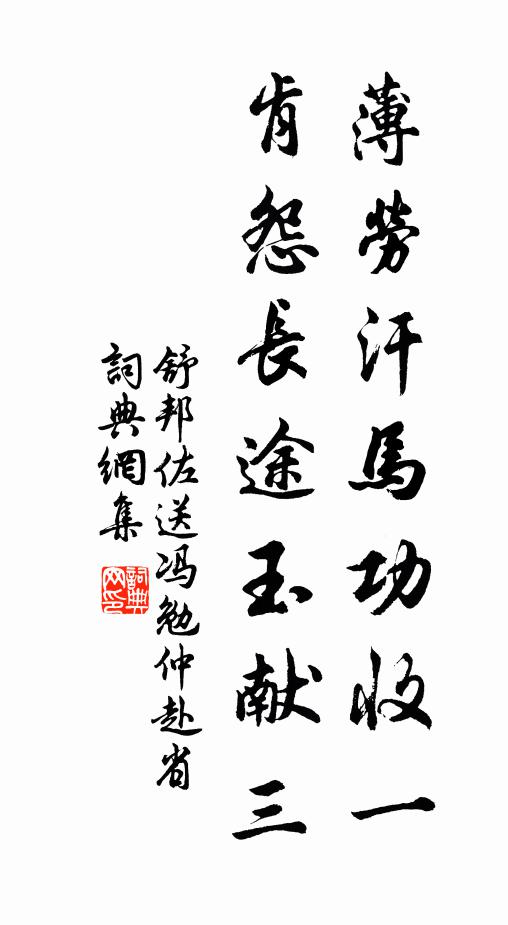 薄勞汗馬功收一
肯怨長途玉献三
舒邦佐送冯勉仲赴省
詞典網集
詞典网印